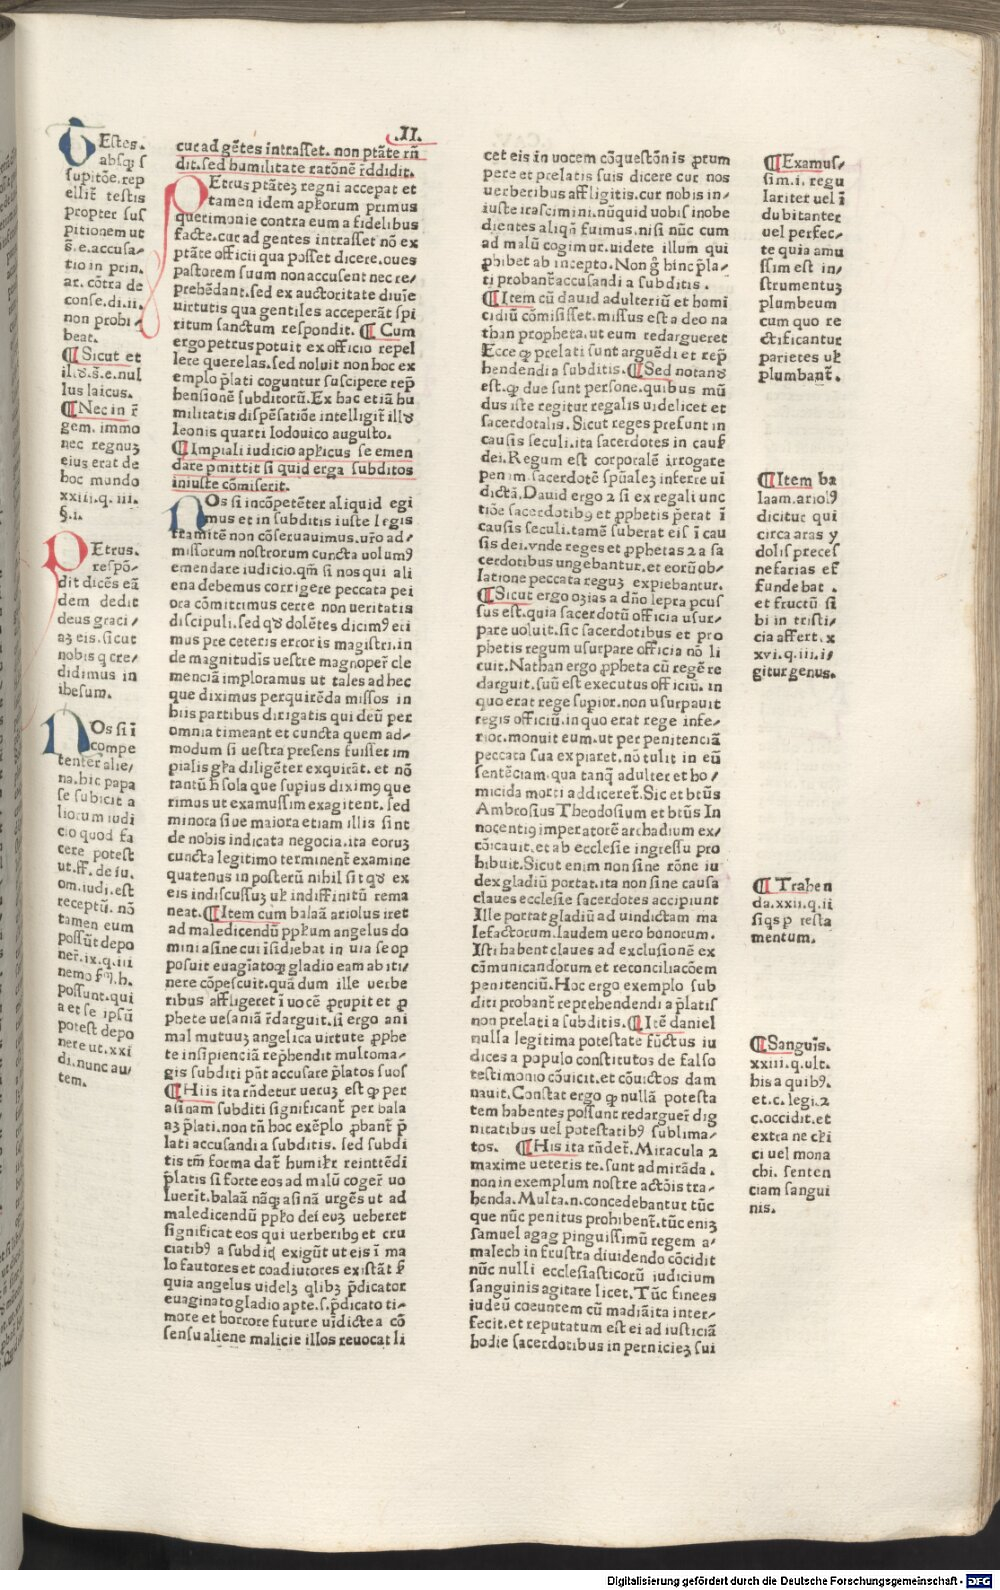 .II.
TEstes.
absqȝ s
supitōe. rep
ellit̄ testis
propter sus
pitionem ut
s̄. e. accusa-
tio in prin.
ar. cōtra de
conse. di. ii.
non prohi-
beat.
¶ Sicut et
illđ. s̄. e. nul
lus laicus.
¶ Nec in r̄
gem. immo
nec regnuȝ
eius erat de
hoc mundo
xxiii. q. iii.
§. i.
PEtrus.
respō-
dit dicēs eā
dem dedit
deus graci-
aȝ eis. sicut
nobis q cre-
didimus in
ihesum.
NOs si ī
compe
tenter alie-
na. hic papa
se subicit a
liorum iudi
cio quod fa
cere potest
ut. ff. de iu.
om. iudi. est
receptū. nō
tamen eum
possūt depo
ner̄. ix. q. iii
nemo
possunt. qui
a et se ipsū
potest depo
nere ut. xxi
di. nunc au-
tem.
cur ad gētes intrasset. non ptāte rn̄
dit. sed humilitate ratōnē r̄ddidit.
PEtrus ptāteȝ regni accepat et
tamen idem apƚorum primus
querimonie contra eum a fidelibus
facte. cur ad gentes intrasset nō ex
ptāte officii qua posset dicere. oues
pastorem suum non accusent nec re-
prehēdant. sed ex auctoritate diuīe
uirtutis qua gentiles acceperāt spi
ritum sanctum respondit. ¶ Cum
ergo petrus potuit ex officio repel
lere querelas. sed noluit non hoc ex
emplo p̄lati coguntur suscipere rep̄
hensionē subditorū. Ex hac etiā hu
militatis dispēsatiōe intelligit̄ illđ
leonis quarti lodouico augusto.
¶ Impiali iudicio apƚicus se emen
dare pmittit si quid erga subditos
iniuste cōmiserit.
NOs si incōpetēter aliquid egi
mus et in subditis iuste legis
tramitē non cōseruauimus. uro ad-
missorum nostrorum cuncta uolumꝰ
emendare iudicio. qm̄ si nos qui ali
ena debemus corrigere peccata pei
ora cōmittimus certe non ueritatis
discipuli. sed qđ dolētes dicimꝰ eri
mus pre ceteris erroris magistri. in
de magnitudīs uestre magnoper̄ cle
menciā imploramus ut tales ad hec
que diximus perquirēda missos in
hiis partibus dirigatis qui deū per
omnia timeant et cuncta quem ad-
modum si uestra presens fuisset im
pialis gƚa diligēter exquirāt. et nō
tantū h̄ sola que supius diximꝰ que
rimus ut examussim exagitent. sed
minora siue maiora etiam illis sint
de nobis indicata negocia. ita eoruȝ
cuncta legitimo terminent̄ examine
quatenus in posterū nihil sit qđ ex
eis indiscussuȝ uƚ indiffinitū rema
neat. ¶ Item cum balaā ariolus iret
ad maledicendū ppƚum angelus do
mini asine cui īsidiebat in uia se op
posuit euagīatoqȝ gladio eam ab iti-
nere cōpescuit. quā dum ille uerbe
ribus affligeret ī uocē ꝓrupit et ꝓ
phete uesaniā r̄darguit. si ergo ani
mal mutuuȝ angelica uirtute ꝓphe
te insipienciā rep̄hendit multoma-
gis subditi pn̄t accusare p̄latos suos
¶ Hiis ita rn̄detur ueruȝ est ꝙ per
asinam subditi significant̄ per bala
aȝ p̄lati. non tn̄ hoc exēplo ꝓbant̄ p̄
lati accusandi a subditis. sed subdi
tis tm̄ forma dat̄ humiƚr reinttēdi
p̄latis si forte eos ad malū coger̄ uo
luerit. balaā nāqȝ asinā urgēs ut ad
maledicendū ppƚo dei euȝ ueheret
significat eos qui uerberibꝰ et cru
ciatibꝰ a subditos exigūt ut eis ī ma
lo fautores et coadiutores existāt
quia angelus uidelȝ qlibȝ p̄dicator
euaginato gladio apte. s. p̄dicato ti-
more et horrore future uīdicte a cō
sensu aliene malicie illos reuocat li
cet eis in uocem cōquestōnis ꝓrum
pere et prelatis suis dicere cur nos
uerberibus affligitis. cur nobis in-
iuste irascimini. nūquid uobis inobe
dientes aliqñ fuimus. nisi nūc cum
ad malū cogimur. uidete illum qui
ꝓhibet ab incepto. Non g̊ hinc p̄la-
ti probant̄ accusandi a subditis.
¶ Item cū dauid adulteriū et homi
cidiū cōmisisset. missus est a deo na
than propheta. ut eum redargueret
Ecce ꝙ prelati sunt arguēdi et rep̄
hendendi a subditis. ¶ Sed notanđ
est. ꝙ due sunt persone. quibus mū
dus iste regitur regalis uidelicet et
sacerdotalis. Sicut reges presunt in
causis seculi. ita sacerdotes in cauf̄
dei. Regum est corporalē irrogare
penam. sacerdotē spūaleȝ inferre ui
dictā. Dauid ergo ⁊ si ex regali unc
tiōe sacerdotibꝰ et ꝓphetis p̄erat ī
causis seculi. tamē suberat eis ī cau
sis dei. vnde reges et ꝓphetas ⁊ a sa
cerdotibus ungebantur. et eorū ob-
latione peccata reguȝ expiebantur.
¶ Sicut ergo oȝias a dño lepra pcus
sus est. quia sacerdotū officia usur-
pare uoluit. sic sacerdotibus et pro
phetis regum usurpare officia nō li
cuit. Nathan ergo ꝓpheta cū regē re
darguit. suū est executus officiū. in
quo erat rege supior. non usurpauit
regis officiū. in quo erat rege infe-
rior. monuit eum. ut per penitenciā
peccata sua expiaret. nō tulit in eū
sentēciam. qua tanqȝ adulter et ho-
micida morti addiceret̄. Sic et btūs
Ambrosius Theodosium et btūs In
nocentiꝰ imperatorē archadium ex-
cōicauit. et ab ecclesie ingressu pro
hibuit. Sicut enim non sine rōne iu
dex gladiū portat. ita non sine causa
claues ecclesie sacerdotes accipiunt
Ille portat gladiū ad uindictam ma
lefactorum. laudem uero bonorum.
Isti habent claues ad exclusionē ex
cāmunicandorum et reconciliacōem
penitenciū. Hoc ergo exemplo sub
diti probant̄ reprehendendi a p̄latis
non prelati a subditis. ¶ Itē daniel
nulla legitima potestate fūctus iu
dices a populo constitutos de falso
testimonio cōuicit. et cōuictos dam
nauit. Constat ergo ꝙ nullā potesta
tem habentes possunt redarguer̄ dig
nitatibus uel potestatibꝰ sublima-
tos. ¶ His ita rn̄det̄. Miracula ⁊
maxime ueteris te. sunt admirāda.
non in exemplum nostre actōis tra-
henda. Multa. n. concedebantur tūc
que nūc penitus prohibent̄. tūc eniȝ
samuel agag pinguissimū regem a-
malech in frustra diuidendo cōcidit
nūc nulli ecclesiasticorū iudicium
sanguinis agitare licet. Tūc finees
iudeū coeuntem cū madiāita inter-
fecit. et reputatum est ei ad iusticiā
hodie sacerdotibus in perniciez sui
¶ Examus-
sim. i. regu
lariter uel ī
dubitanter
uel perfec-
te quia amu
ssim est in-
strumentuȝ
plumbeum
cum quo re
ctificantur
parietes uƚ
plumbant̄.
¶ Item ba
laam. ariolꝰ
dicitur qui
circa aras y
dolis preces
nefarias ef
fundebat.
et fructū si
bi in tristi-
cia affert. x
xvi. q. iii. i-
gitur genus.
¶ Trahen
da. xxii. q. ii
si qs p testa
mentum.
¶ Sanguīs.
xxiii. q. ult.
his a quibꝰ.
et. c. legi. ⁊
c. occidit. et
extra ne cƚi
ci uel mona
chi. senten
ciam sangui
nis.
Digitalisierung gefördert durch die Deutsche Forschungsgemeinschaft - DFG